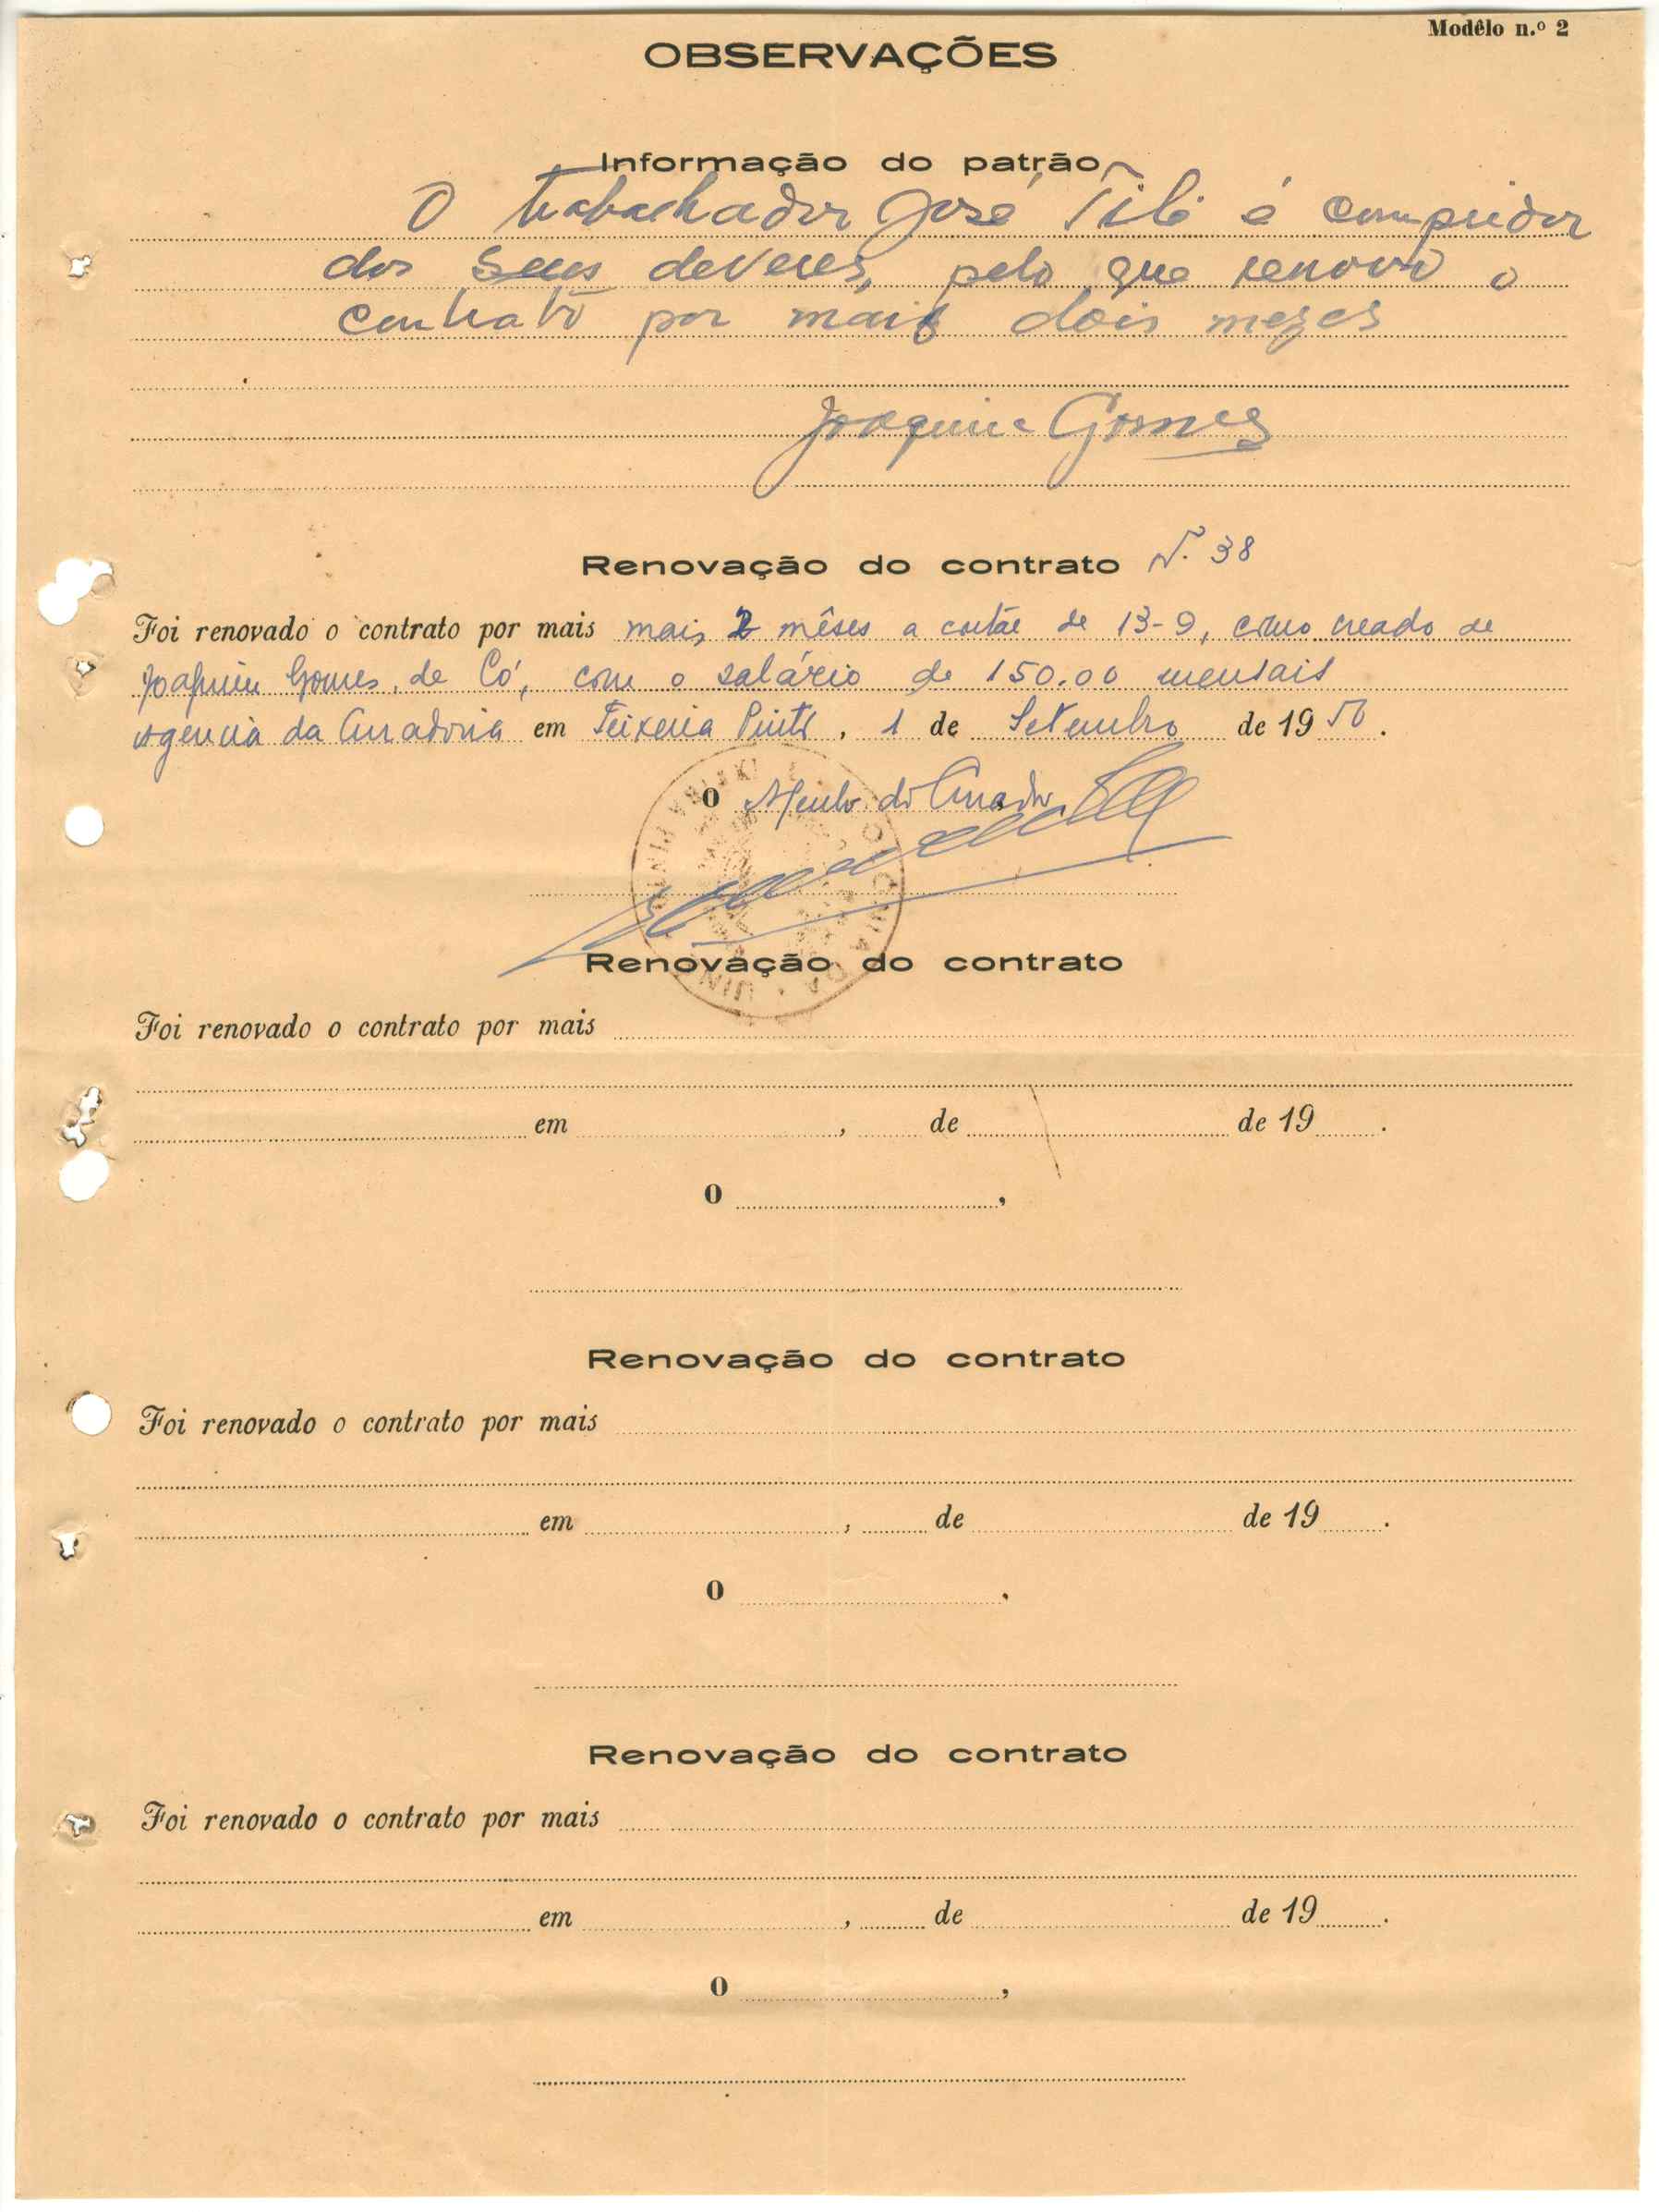 Modêlo n.º 2
OBSERVAÇÕES
Informação do patrão
O trabalhador José Tilé é compridor
dos seus deveres, pelo que renovo o
contrato por mais dois mezes
Joaquim Gomes
Renovação do contrato N. 38
Foi renovado o contrato por mais mais 2 mêses a contar de 13-9, como creado de
Joaquim Gomes, de Có, com o salário de 150.00 mensais
Agência da Curadoria em Teixeira Pinto, 1 de Setembro de 1950.
O Agente do Curador
Renovação do contrato
Foi renovado o contrato por mais
em , de de 19 .
O ,
Renovação do contrato
Foi renovado o contrato por mais
em , de de 19 .
O ,
Renovação do contrato
Foi renovado o contrato por mais
em , de de 19 .
O ,